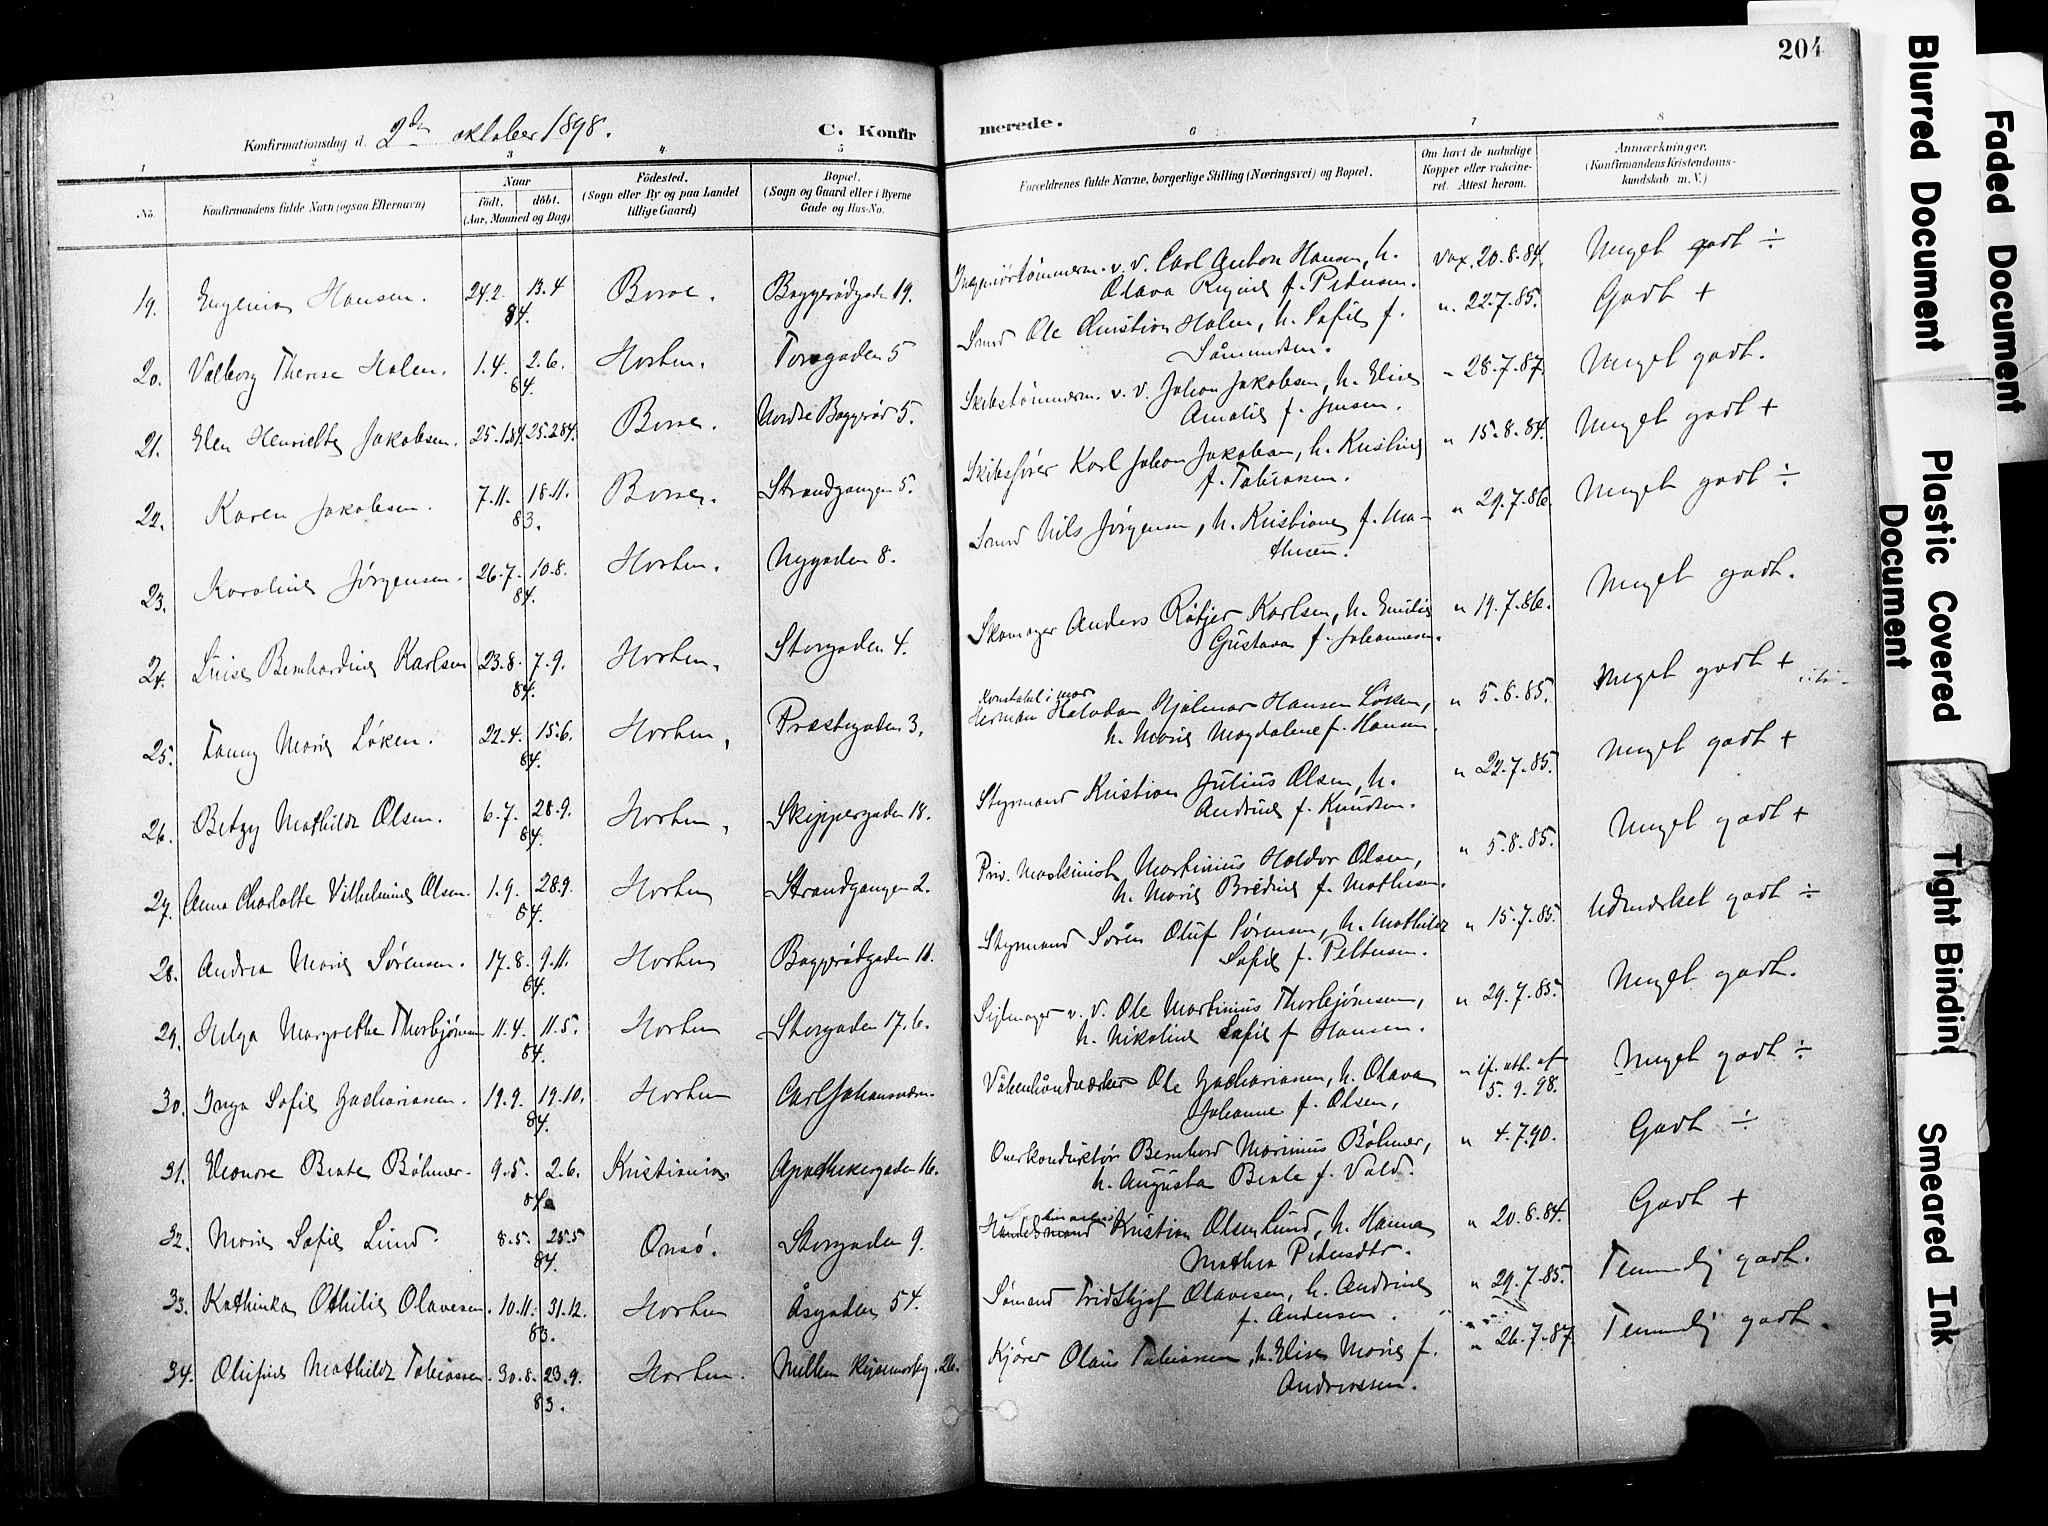 204
Konfirmationsdag d. 2den oktober 1898.
C. Konfir
merede.
1 2 3 4. 5 6 7 8
No. Konfirmandens fulde Navn (ogsaa Efternavn) Naar födt. döbt. (Aar, Maaned og Dag) Födested. (Sogn eller By og paa Landet tillige Gaard) Bopæl. (Sogn og Gaard eller i Byerne Gade og Hus-No. Forældrenes fulde Navne, borgerlige Stilling (Næringsvei) og Bopæl. Om havt de naturlige Kopper eller vakcineret. Attest herom. Anmærkninger. (Konfirmandens Kristendomskundskab m. V.)
19. Eugenia Hansen. 24.2. 13.4 84. Borre. Baggerödgaden 19. Ingeniörtömmerm. v. V. Carl Anton Hansen, h. Olava Regine f. Pedersen. Vax. 20.8.84. Meget godt ÷
20. Valborg Therese Holen. 1.4. 2.6. 84. Horten. Torvgaden 5 Smed Ole Christian Holen, h. Sofie f. Såmundsen. " 22.7.85. Godt +
21. Elen Henriette Jakobsen. 25.1.84. 25.2.84. Borre. Nordre Baggeröd 5. Skibstømmerm. v. V. Johan Jakobsen, h. Elise Amalie f. Jensen. " 28.7.87. Meget godt.
22. Karen Jakobsen. 7.11. 18.11. 83. Borre. Strandgangen 5. Skibsfører Karl Johan Jakobsen, h. Kristine f. Tobiasen. " 15.8.84. Meget godt +
23. Karoline Jørgensen. 26.7. 10.8. 84. Horten. Nygaden 8. Smed Nils Jørgensen, h. Kristiane f. Mathisen. " 29.7.86. Meget godt ÷
24. Lovise Bernhardine Karlsen 23.8. 7.9. 84. Horten. Storgaden 4. Skomager Anders Røtjer Karlsen, h. Emilie Gustava f. Johannesen. " 19.7.86. Meget godt.
25. Fanny Marie Løken. 22.4. 15.6. 84. Horten, Præstegaden 3. Konstabel i mar Herman Halvdan Hjalmar Hansen Løken, h. Marie Magdalene f. Hansen " 5.8.85. Meget godt +
26. Betzy Mathilde Olsen. 6.7. 28.9. 84. Horten, Skippergaden 18. Styrmand Kristian Julius Olsen, h. Andrine f. Knudsen. " 22.7.85. Meget godt +
27. Anna Charlotte Vilhelmine Olsen. 1.9. 28.9. 84. Horten Strandgangen 2. Priv. Maskinist Martinius Haldor Olsen, h. Marie Bredine f. Mathisen. " 5.8.85. Meget godt +
28. Andrea Marie Sørensen. 17.8. 9.11. 84. Horten Baggerödgaden 11. Styrmand Søren Oluf Sørensen, h. Mathilde Sofie f. Pettersen. " 15.7.85. Udmærket godt ÷
29. Helga Margrethe Thorbjørnsen 11.4. 11.5. 84. Horten Storgaden 17.b. Sejlmager v. V. Ole Martinius Thorbjørnsen, h. Nikoline Sofie f. Hansen. " 29.7.85. Meget godt.
30. Inga Sofie Zachariasen. 19.9. 19.10. 84. Horten Carl Johansveien. Våbenhåndværker Ole Zachariasen, h. Olava Johanne f. Olsen, " if. att. af 5.9.98. Meget godt ÷
31. Eleonore Beate Böhmer 9.5. 2.6. 84. Kristiania Apothekergaden 16. Overkonduktör Bernhard Marinius Böhmer, h. Augusta Beate f. Vold. " 4.7.90. Godt ÷
32. Marie Sofie Lund. 8.5. 25.5 84. Onsö. Storgaden 9. Handelsmand Kristian Olsen Lund, h. Hanna Mathea Pedersdtr. " 20.8.84. Godt +
33. Kathinka Othilie Olavesen. 10.11. 31.12. 83. Horten Åsgaden 54. Sömand Fridthjof Olavesen, h. Andrine f. Andersen. " 29.7.85. Temmelig godt.
34. Olufine Mathilde Tobiassen. 30.8. 23.9. 83. Horten. Mellem Rejsemosby. 26. Kjører Olaus Tobiassen, h. Elise Marie f. Andreassen. " 26.7.87. Temmelig godt.
Blurred Document
Faded Document
Plastic Covered Document
Tight Binding
Smeared Ink